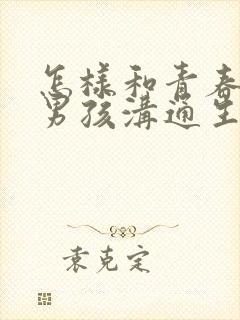 怎樣和青春
男孩溝通生
袁克定